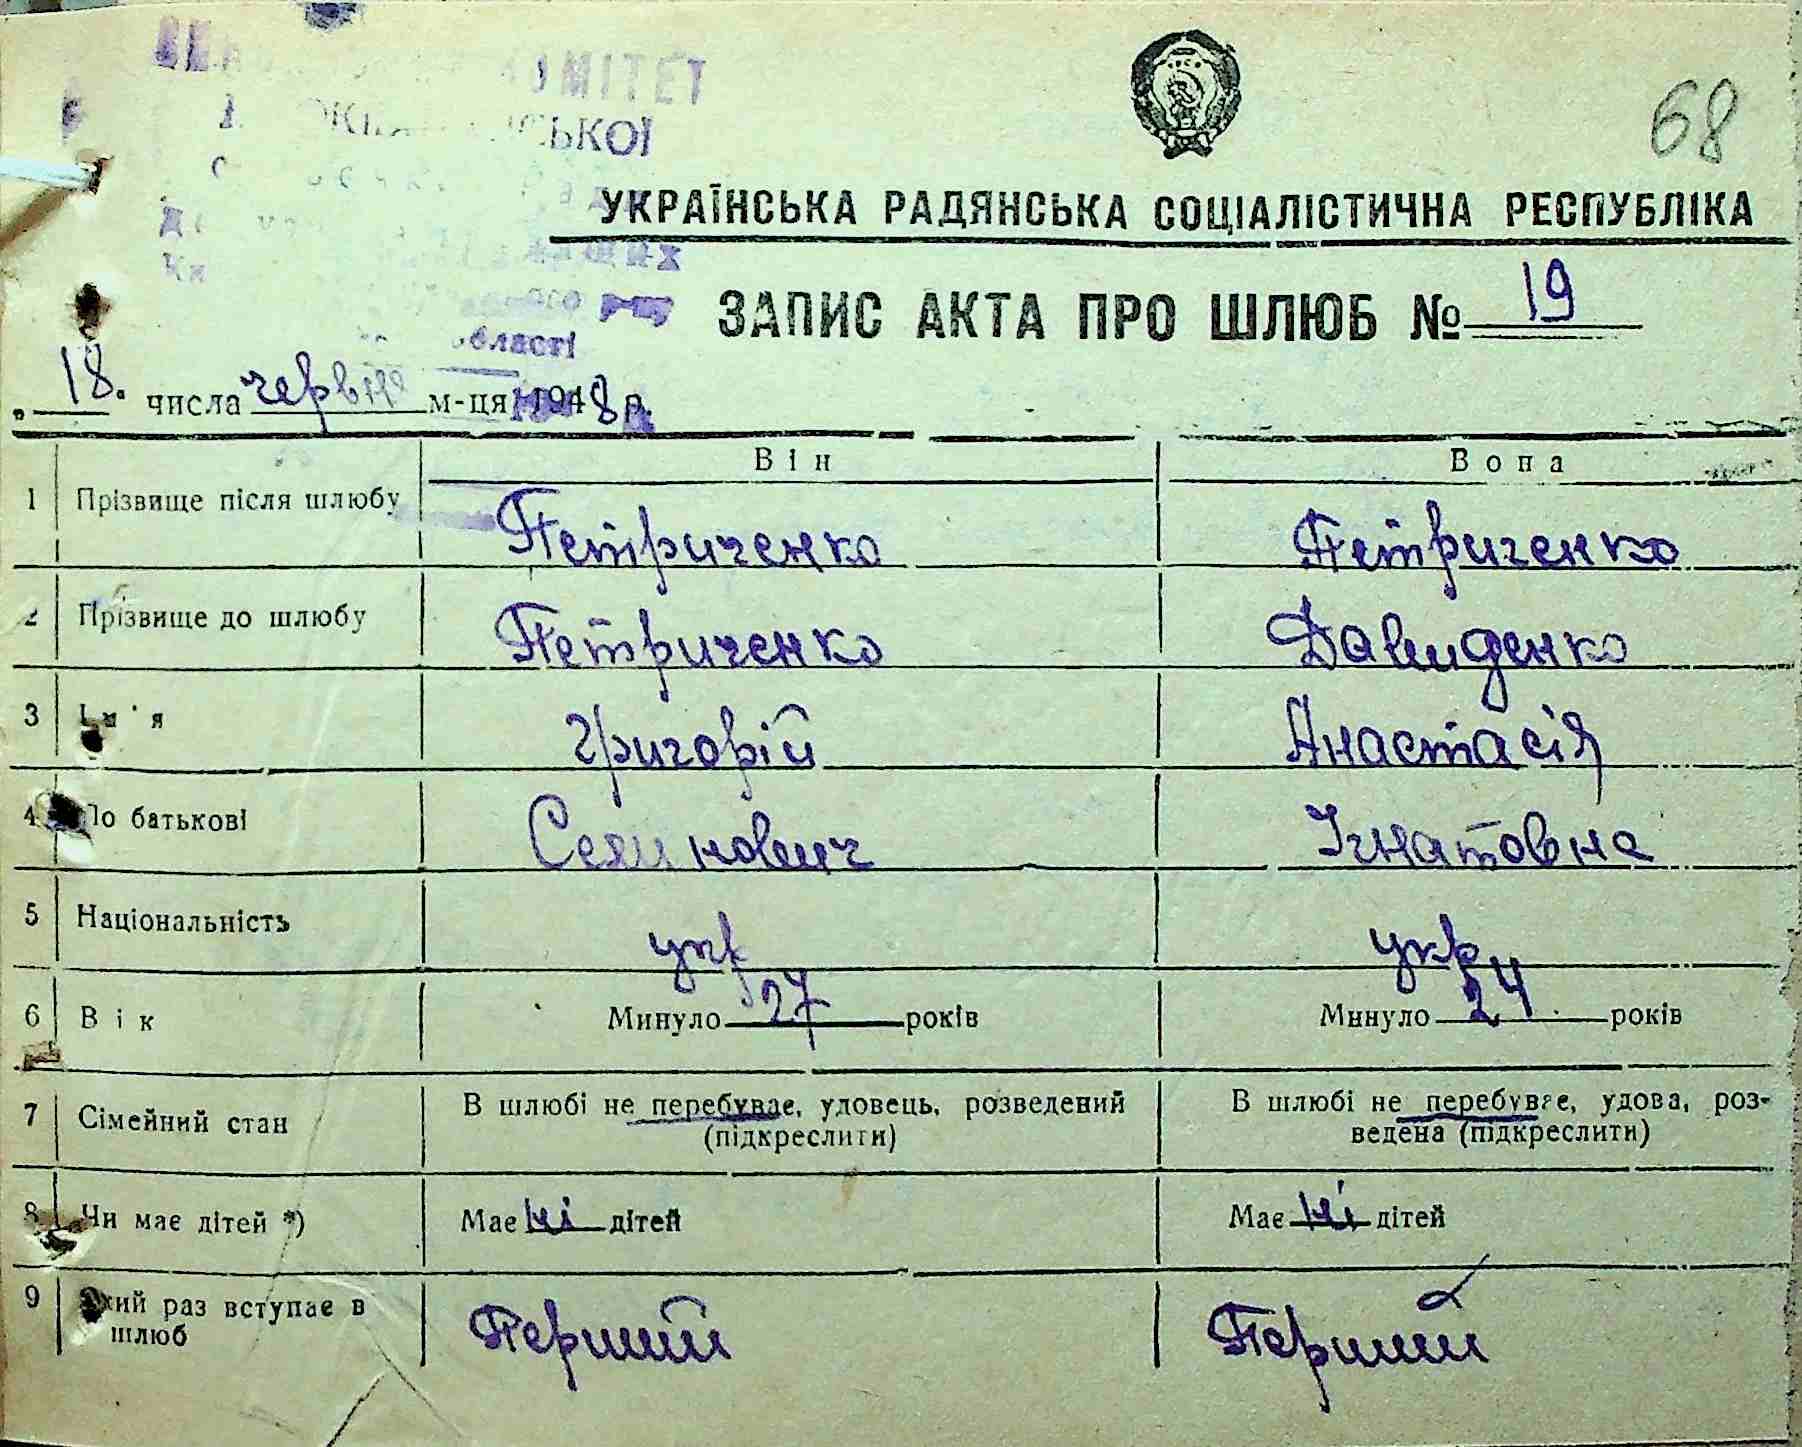 КОМІТЕТ
68
УКРАЇНСЬКА РАДЯНСЬКА СОЦІАЛІСТИЧНА РЕСПУБЛІКА
ЗАПИС АКТА ПРО ШЛЮБ № 19
області
„ 18. числа червня м-ця 1948 р.
Він Вона
1 Прізвище після шлюбу Петриченко Петриченко
2 Прізвище до шлюбу Петриченко Давиденко
3 Ім'я Григорій Анастасія
4 По батькові Игнатовна
5 Національність укр укр
6 Вік Минуло 27 років Минуло 24 років
7 Сімейний стан В шлюбі не перебуває, удовець, розведений В шлюбі не перебуває, удова, роз-
(підкреслити) ведена (підкреслити)
8 Чи має дітей *) Має ні дітей Має ні дітей
9 Який раз вступає в Перший Перший
шлюб